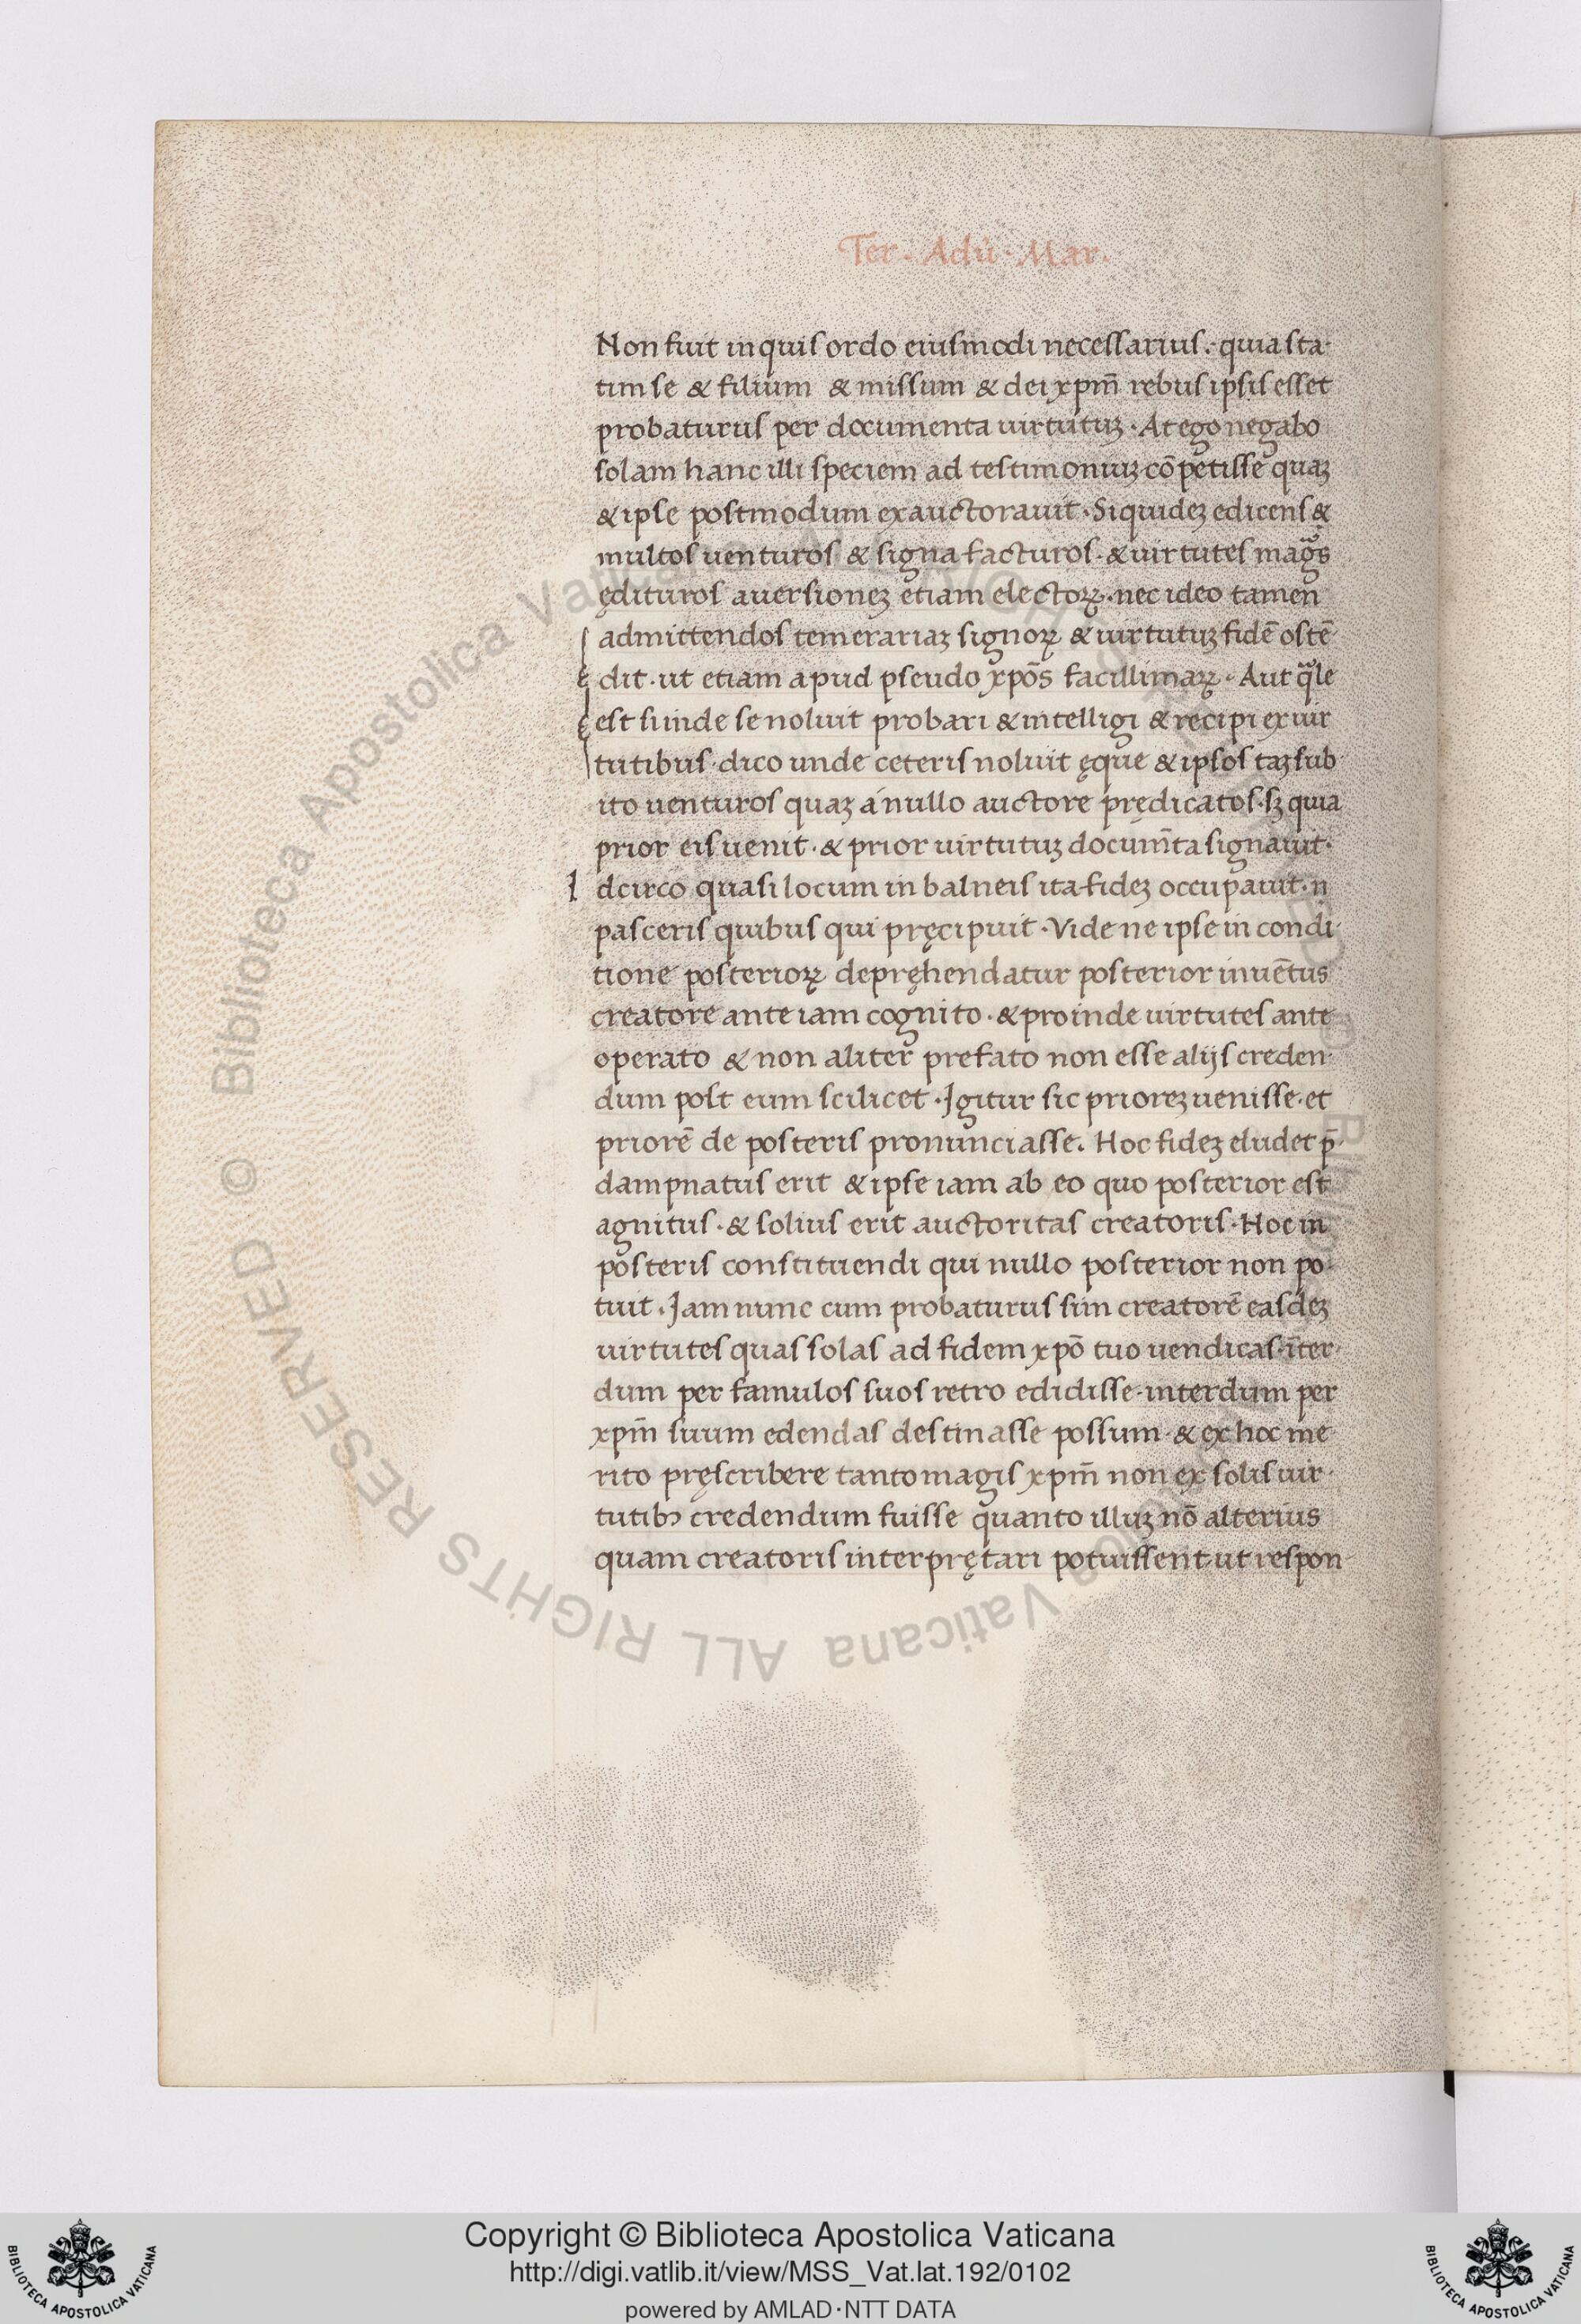 Ter · Adū · Mar ·
Non fuit inquis ordo eiusmodi necessarius · quia sta-
tim se & filium & missum & dei xpm̄ rebus ipsis esset
probaturus per documenta uirtutuꝫ · At ego negabo
solam hanc illi speciem ad testimoniuꝫ cōpetisse quaꝫ
& ipse postmodum exauctorauit · Siquideꝫ edicens &
multos uenturos & signa facturos · & uirtutes mag̃s
ędituros auersioneꝫ etiam electoꝝ · nec ideo tamen
admittendos temerariaꝫ signoꝝ & uirtutuꝫ fidē ostē-
dit · ut etiam apud pseudo xpōs facillimaꝝ · Aut q̃le
est si inde se noluit probari & intelligi & recipi ex uir
tutibus · dico unde ceteris noluit ęque & ipsos taꝫ sub
ito uenturos quaꝫ a nullo auctore prędicatos · sꝫ quia
prior eis uenit · & prior uirtutuꝫ docum̄ta signauit ·
I dcirco quasi locum in balneis ita fideꝫ occupauit · n̄
pasceris quibus qui pręcipuit · Vide ne ipse in condi-
tione posterioꝝ depręhendatur posterior inuētus
creatore ante iam cognito · & proinde uirtutes ante
operato & non aliter prefato non esse alijs creden-
dum post eum scilicet · Igitur sic prioreꝫ uenisse · et
priorē de posteris pronunciasse. Hoc fideꝫ eludet p̄
dampnatus erit & ipse iam ab eo quo posterior est
agnitus · & solius erit auctoritas creatoris · Hoc in
posteris constituendi qui nullo posterior non po-
tuit · Iam nunc cum probaturus sim creatorē easdeꝫ
uirtutes quas solas ad fidem xpō tuo uendicas · īter-
dum per famulos suos retro edidisse · interdum per
xpm̄ suum edendas destinasse possum · & ex hoc me
rito pręscribere tanto magis xpm̄ non ex solis uir-
tutibꝰ credendum fuisse quanto illuꝫ nō alterius
quam creatoris interprętari potuissent ut respon-
Biblioteca Apostolica Vaticana ALL RIGHTS RESERVED ©
Copyright © Biblioteca Apostolica Vaticana
http://digi.vatlib.it/view/MSS_Vat.lat.192/0102
powered by AMLAD·NTT DATA
BIBLIOTECA APOSTOLICA VATICANA
BIBLIOTECA APOSTOLICA VATICANA